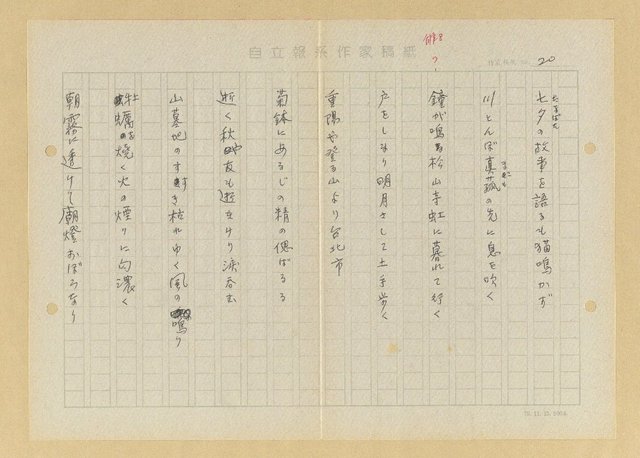 自立報系作家稿紙
20
七夕の故事を語るも猫鳴かず
たなばた
川とんぼ真菰の先に息を吹く
まこも
鐘が鳴る松山寺虹に暮れて行く
戸をしまり明月さして土手歩く
重陽や登る山より台北市
菊鉢にあるじの精の偲ばるる
逝く秋や友も逝きけり涙呑む
山墓地のすすき枯れゆく風の鳴り
牡蠣を焼く火の煙りに匂濃く
朝霧に透けて廟燈おぼろなり